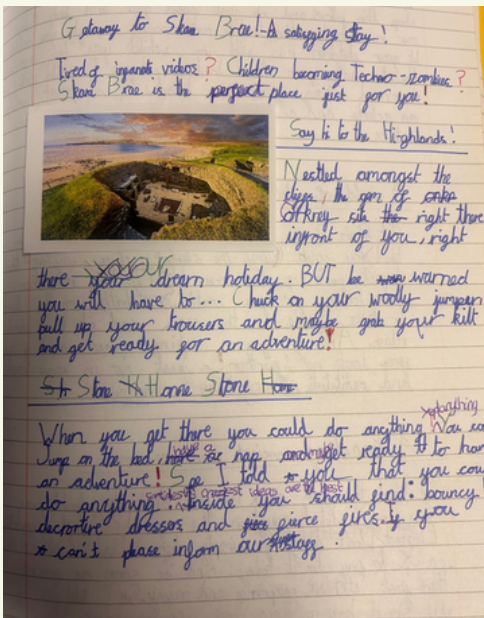 Getaway to Skara Brae!-A satisfying Stay!
Tired of inganti videos? Children becoming Techno--zombies?
Skara Brae is the perfect place just for you!
Say hi to the Hi-ghlands!
Nestled amongst the
cliffs, the gem of
Orkney sits right there
infront of you, right
there your dream holiday. BUT be warned
you will have to... Chuck on your woolly jumper
pull up your trousers and maybe grab your kilt
and get ready for an adventure!
Stone Home Stone
When you get there you could do anything You co
Jump on the bed, have a nap and maybe get ready to ha
an adventure! See I told you that you cou
do anything. Inside you should find: bouncy
decrortive dressors and fierce fires. If you
can't please inform our staff.